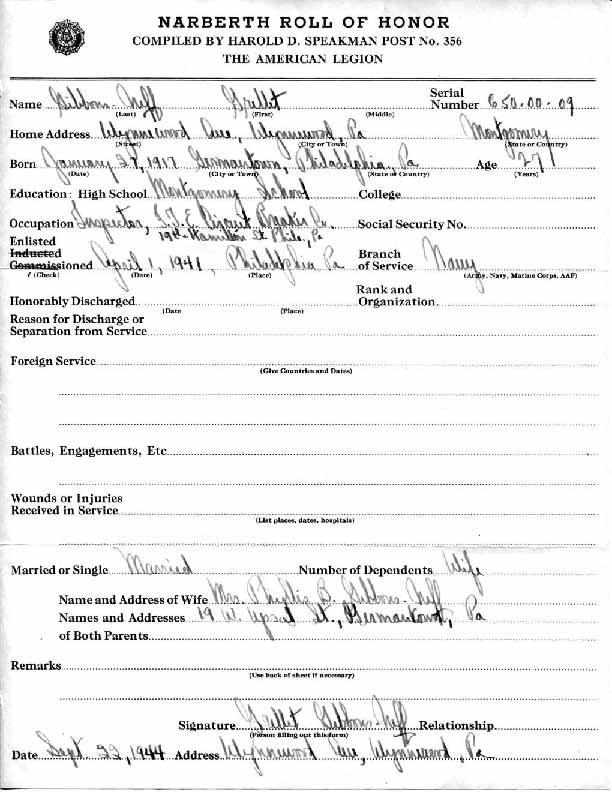 NARBERTH ROLL OF HONOR
COMPILED BY HAROLD D. SPEAKMAN POST No. 356
THE AMERICAN LEGION
Name Gibbons-Neff Grellet Serial Number 650-00-09
(Last) (First) (Middle)
Home Address Wynnewood Ave, Wynnewood, Pa Montgomery
(Street) (City or Town) (State or Country)
Born January 27, 1917 Germantown, Philadelphia, Pa Age 27
(Date) (City or Town) (State or Country) (Years)
Education: High School Montgomery School College
Occupation Inspector, I.T.E. Circuit Breaker Co. Social Security No.
19th Hamilton St. Phila, Pa
Enlisted
Inducted
Commissioned April 1, 1941, Philadelphia Pa Branch of Service Navy
(Check) (Date) (Place) (Army, Navy, Marine Corps, AAF)
Rank and
Honorably Discharged Organization
(Date (Place)
Reason for Discharge or
Separation from Service
Foreign Service
(Give Countries and Dates)
Battles, Engagements, Etc
Wounds or Injuries
Received in Service
(List places, dates, hospitals)
Married or Single Married Number of Dependents Wife
Name and Address of Wife Mrs. Phyllis B. Gibbons-Neff
Names and Addresses 19 W. Upsal St., Germantown, Pa
of Both Parents
Remarks
(Use back of sheet if necessary)
Signature Grellet Gibbons-Neff Relationship
(Person filling out this form)
Date Sept 22, 1944 Address Wynnewood Ave, Wynnewood, Pa